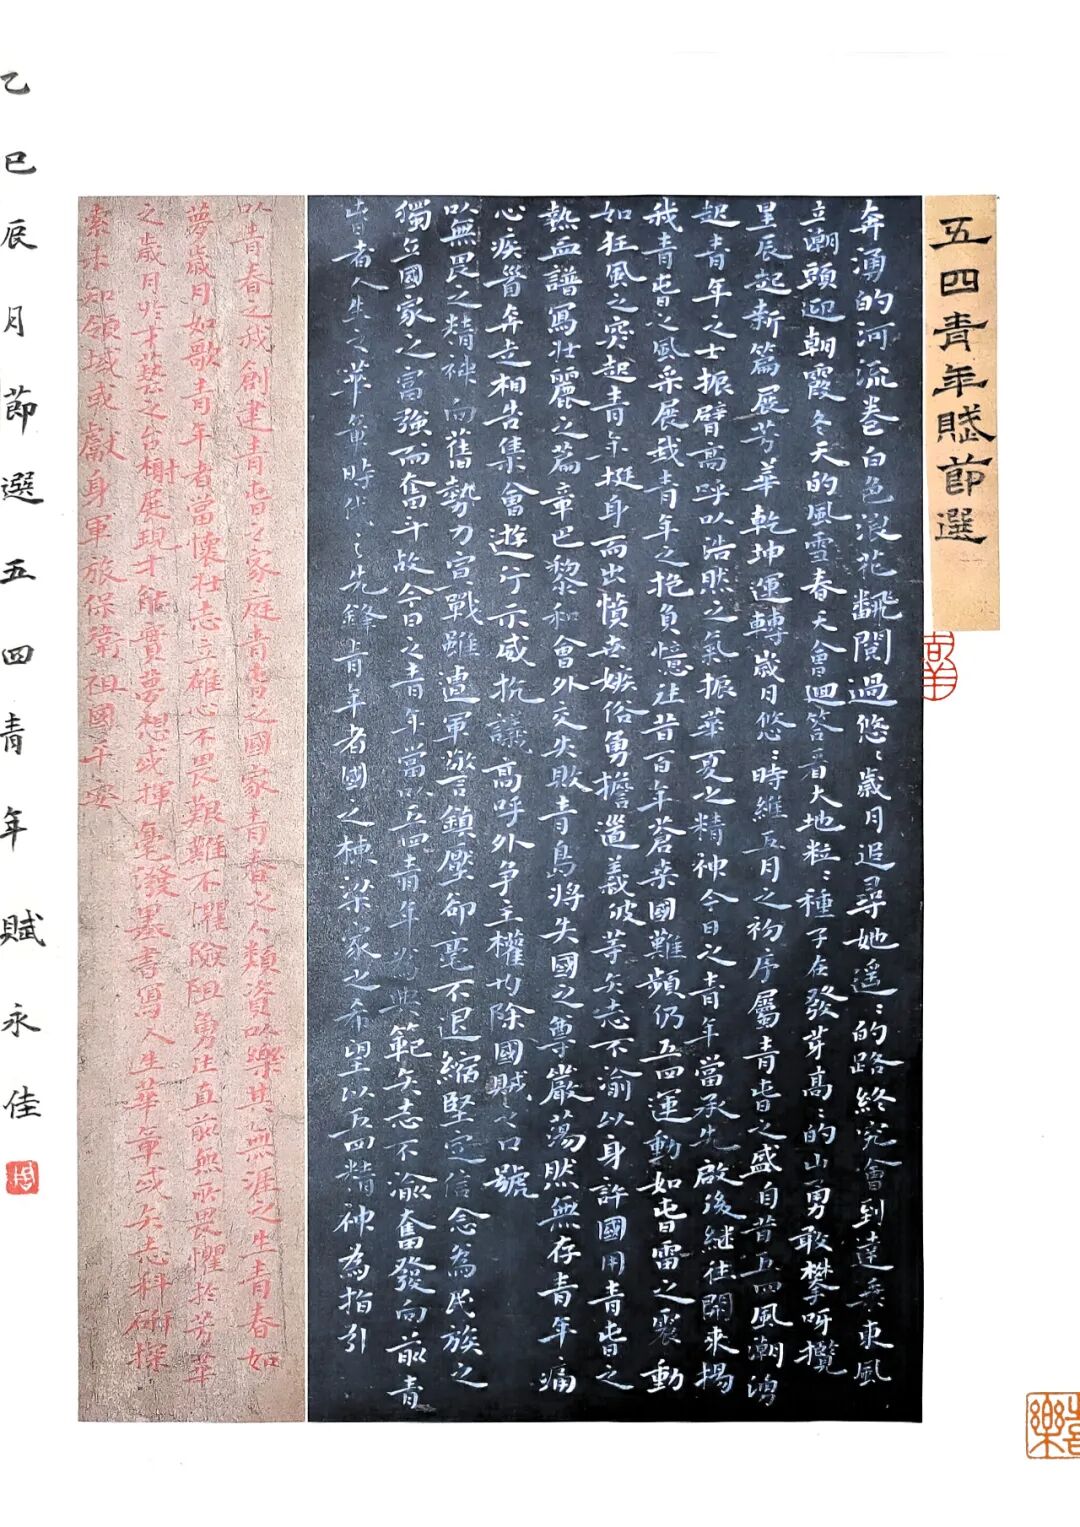 五四青年賦節選
奔湧的河流卷白色浪花翻閱過悠:歲月追尋她遥:的路終究會到達乘東風
立潮頭迎朝霞冬天的風雪春天會迴答着大地粒:種子在發芽高:的山勇敢攀呀攬
星辰起新篇展芳華乾坤運轉歲月悠:時維五月之初序屬青春之盛自昔五四風潮湧
起青年之士振臂高呼以浩然之氣振華夏之精神今日之青年當承先啟後継往開来揚
我青春之風采展我青年之抱負憶往昔百年蒼桑國難頻仍五四運動如春雷之震動
如狂風之突起青年挺身而出憤世嫉俗勇擔道義彼等矢志不渝以身許國用青春之
熱血譜寫壯麗之篇章巴黎和會外交失敗青島將失國之尊嚴蕩然無存青年痛
心疾首奔走相告集會遊行示威抗議高呼外争主權内除國賊之口號
以無畏之精神向舊勢力宣戰雖遭軍警鎮壓卻毫不退縮堅定信念為民族之
獨立國家之富強而奮斗故今日之青年當以五四青年為典範矢志不渝奮發向前青
春者人生之華章時代之先鋒青年者國之棟梁家之希望以五四精神為指引
以青春之我創建青春之家庭青春之國家青春之人類資以樂其無涯之生青春如
夢歲月如歌青年者當懷壯志立雄心不畏艱難不懼險阻勇往直前無所畏懼於芳華
之歲月於才藝之台榭展現才能實夢想或揮毫潑墨書寫人生華章或矢志科研探
索未知領域或獻身軍旅保衛祖國平安
乙巳辰月節選五四青年賦永佳